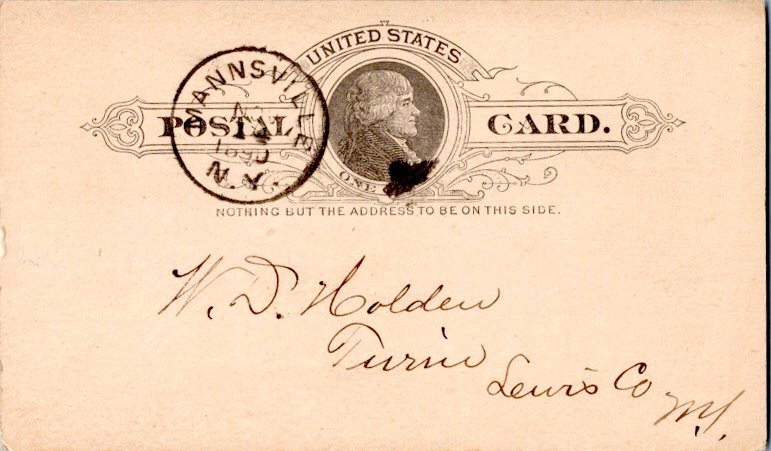 UNITED STATES
POSTAL CARD.
ONE
MANNSVILLE
1890
N.Y.
NOTHING BUT THE ADDRESS TO BE ON THIS SIDE.
W. D. Holden
Turin
Lewis Co
N.Y.